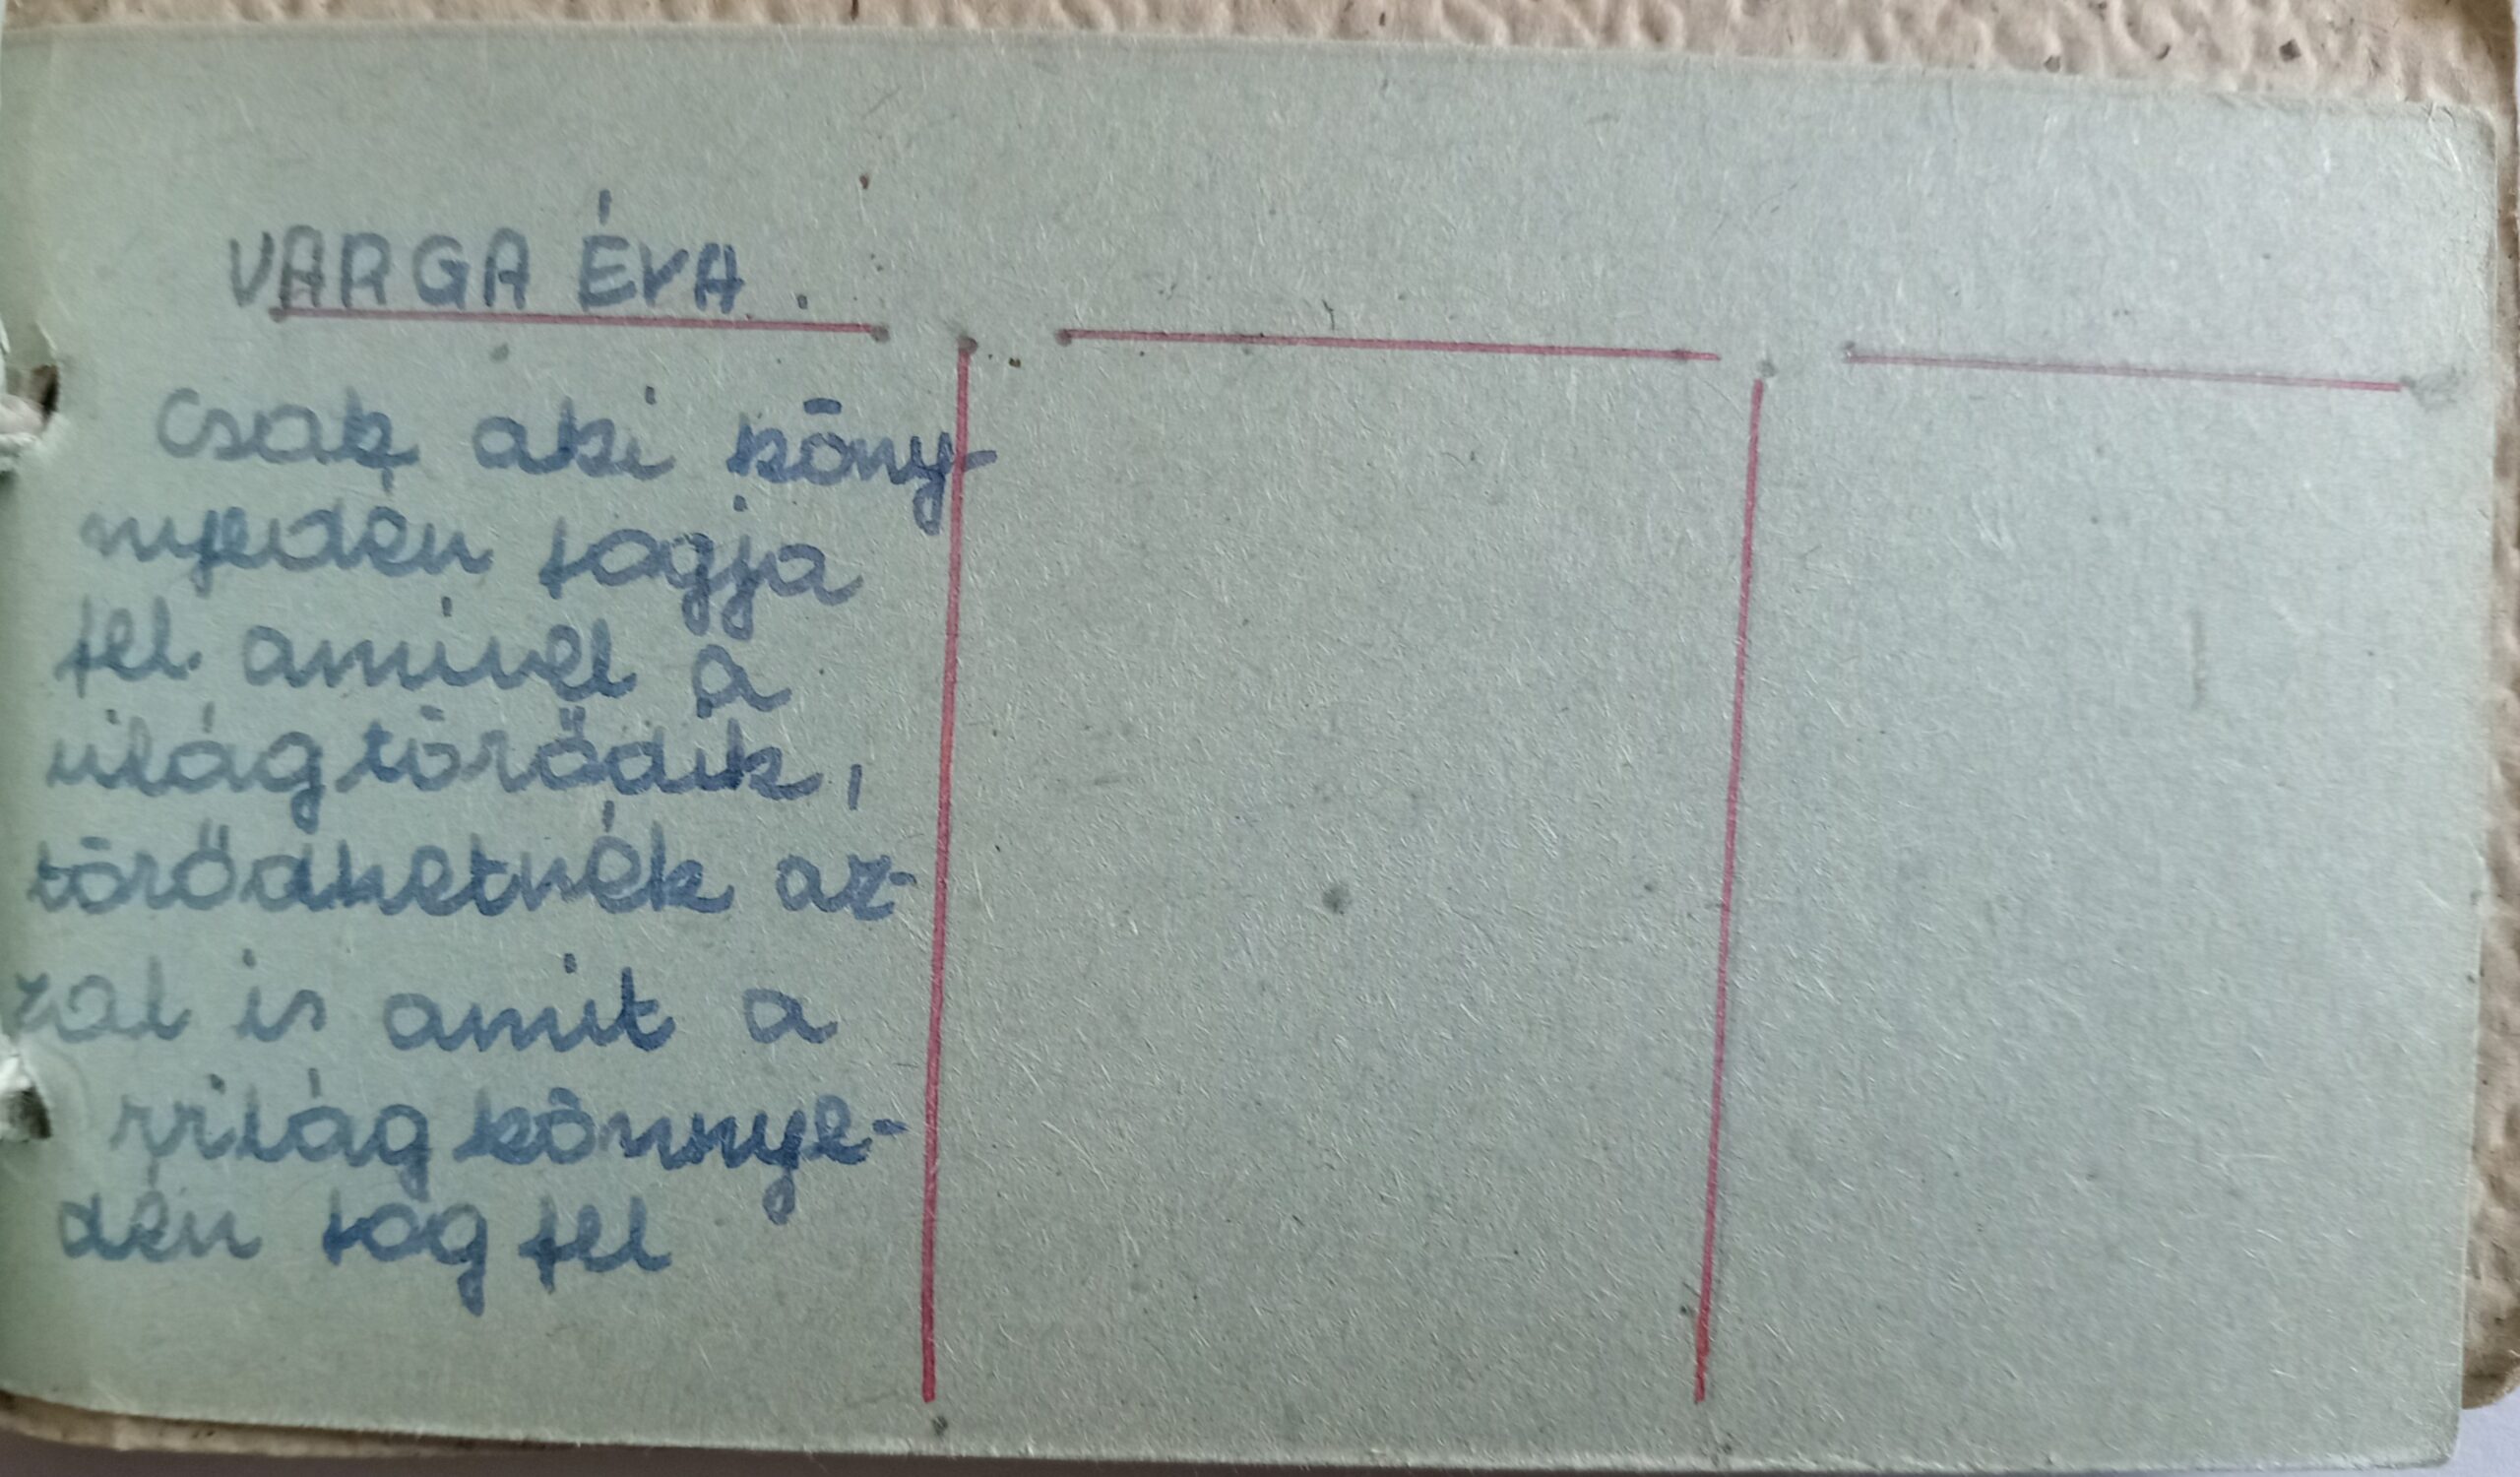 VARGA ÉVA.
Csak aki köny-
nyedén fogja
fel amivel a
világ törődik,
törődhetnék az-
zal is amit a
világ könnye-
dén fog fel